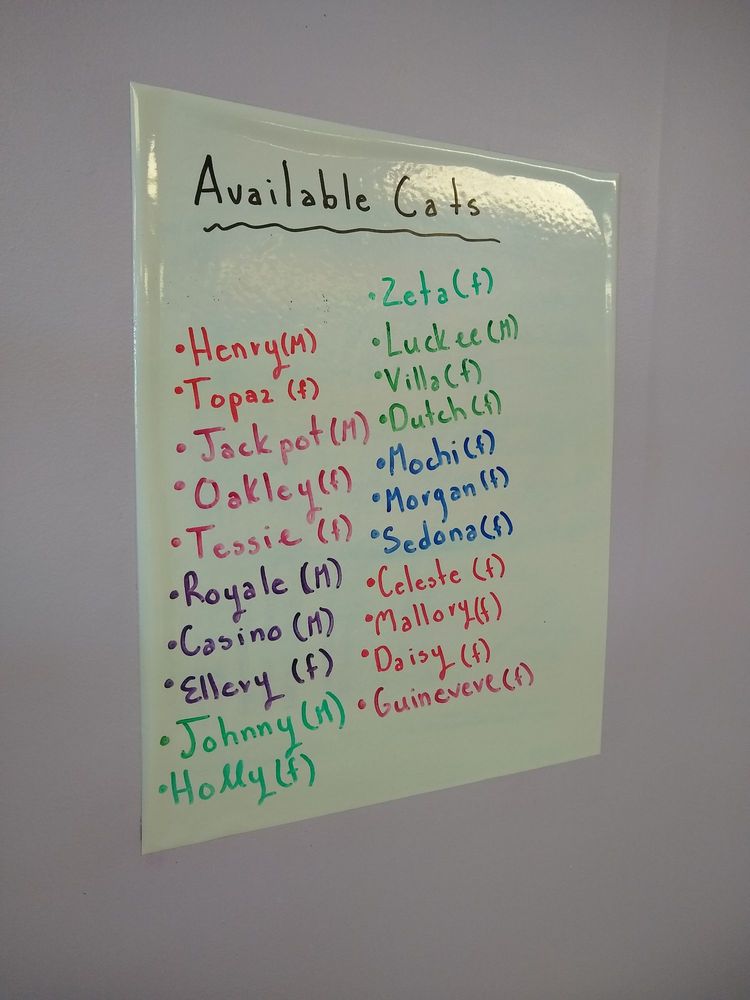 Available Cats
• Henry(M)
• Topaz (f)
• Jackpot(M)
• Oakley(f)
• Tessie (f)
• Royale (M)
• Casino (M)
• Ellery (f)
• Johnny(M)
• Holly(f)
• Zeta(f)
• Luckee(M)
• Villa(f)
• Dutch(f)
• Mochi(f)
• Morgan(f)
• Sedona(f)
• Celeste (f)
• Mallory(f)
• Daisy (f)
• Guinevere(f)